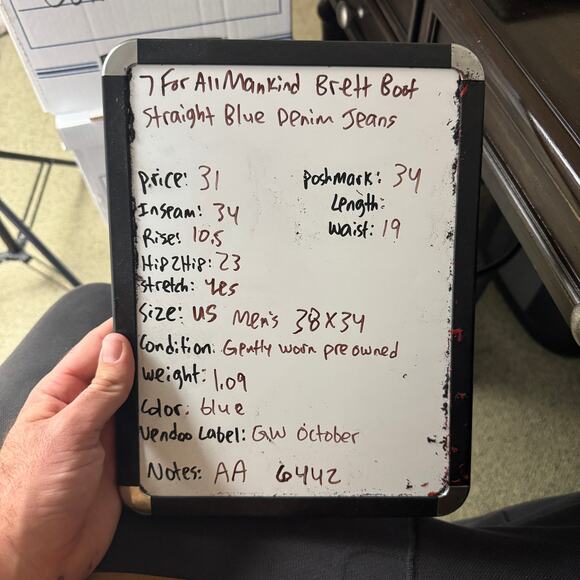 7 For All Mankind Brett Boot
Straight Blue Denim Jeans
price: 31
poshmark: 34
Inseam: 34
Length:
Rise: 10.5
Waist: 19
Hip2Hip: 23
stretch: yes
Size: US Men's 38X34
Condition: Gently worn pre owned
weight: 1.09
Color: blue
Vendoo Label: GW October
Notes: AA 6442